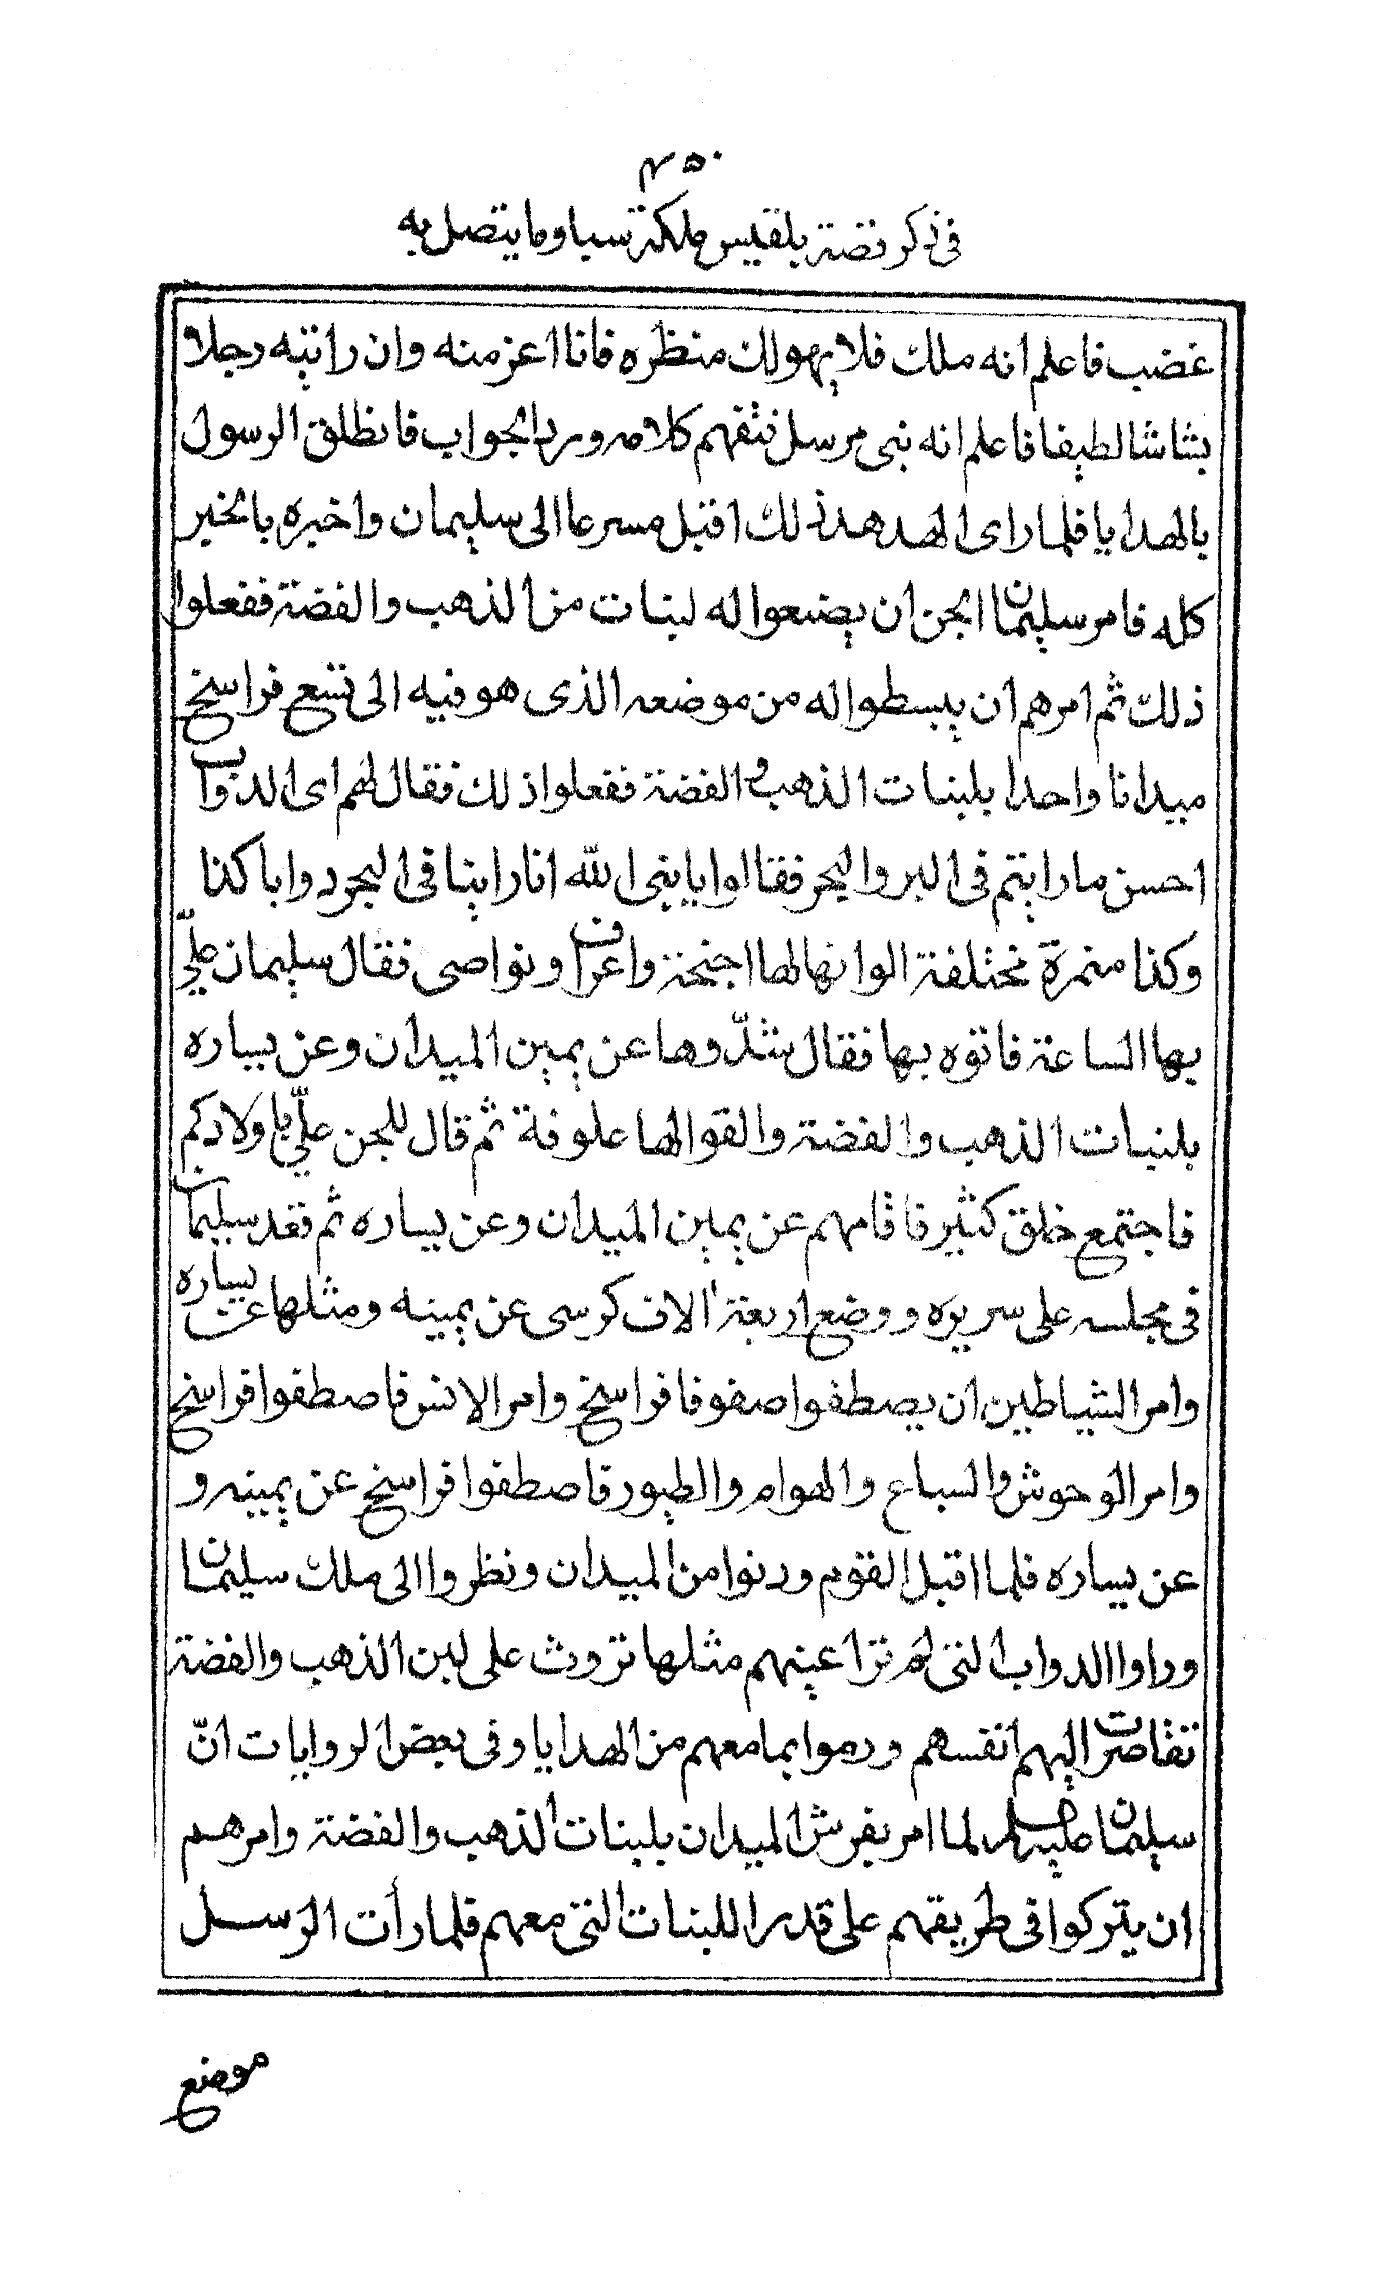 ۴۵۰
فى ذكر قصة بلقيس ملكة سبا وما يتصل به
غضب فاعلم انه ملك فلا يهولك منظره فانا اعز منه وان رايته رجلا
بشاشا لطيفا فاعلم انه نبى مرسل فتفهم كلامه ورد الجواب فانطلق الرسول
بالهدايا فلما راى الهدهد ذلك اقبل مسرعا الى سليمان واخبره بالخبر
كله فامر سليمان الجن ان يضعوا له لبنات من الذهب والفضة ففعلوا
ذلك ثم امرهم ان يبسطوا له من موضعه الذى هو فيه الى تسع فراسخ
ميدانا واحدا بلبنات الذهب والفضة ففعلوا ذلك فقال لهم اى الدواب
احسن ما رايتم فى البر والبحر فقالوا يا نبى الله انا راينا فى البحر دوابا كذا
وكذا منمرة مختلفة الوانها لها اجنحة واعراف ونواصى فقال سليمان علىّ
بها الساعة فاتوه بها فقال شدّوها عن يمين الميدان وعن يساره
بلنبات الذهب والفضة والقوا لها علوفة ثم قال للجن علىّ باولادكم
فاجتمع خلق كثير فاقامهم عن يمين الميدان وعن يساره ثم قعد سليمان
فى مجلسه على سريره ووضع اربعة الاف كرسى عن يمينه ومثلها عن يساره
وامر الشياطين ان يصطفوا صفوفا فراسخ وامر الانس فاصطفوا فراسخ
وامر الوحوش والسباع والهوام والطيور فاصطفوا فراسخ عن يمينه و
عن يساره فلما اقبل القوم ودنوا من الميدان ونظروا الى ملك سليمان
وراوا الدواب التى لم تر اعينهم مثلها تروث على لبن الذهب والفضة
تقاصرت اليهم انفسهم ورموا بما معهم من الهدايا وفى بعض الروايات انّ
سليمان عليه السلام لما امر بفرش الميدان بلبنات الذهب والفضة وامرهم
ان يتركوا فى طريقهم على قدر اللبنات التى معهم فلما رأت الرسل
موضع